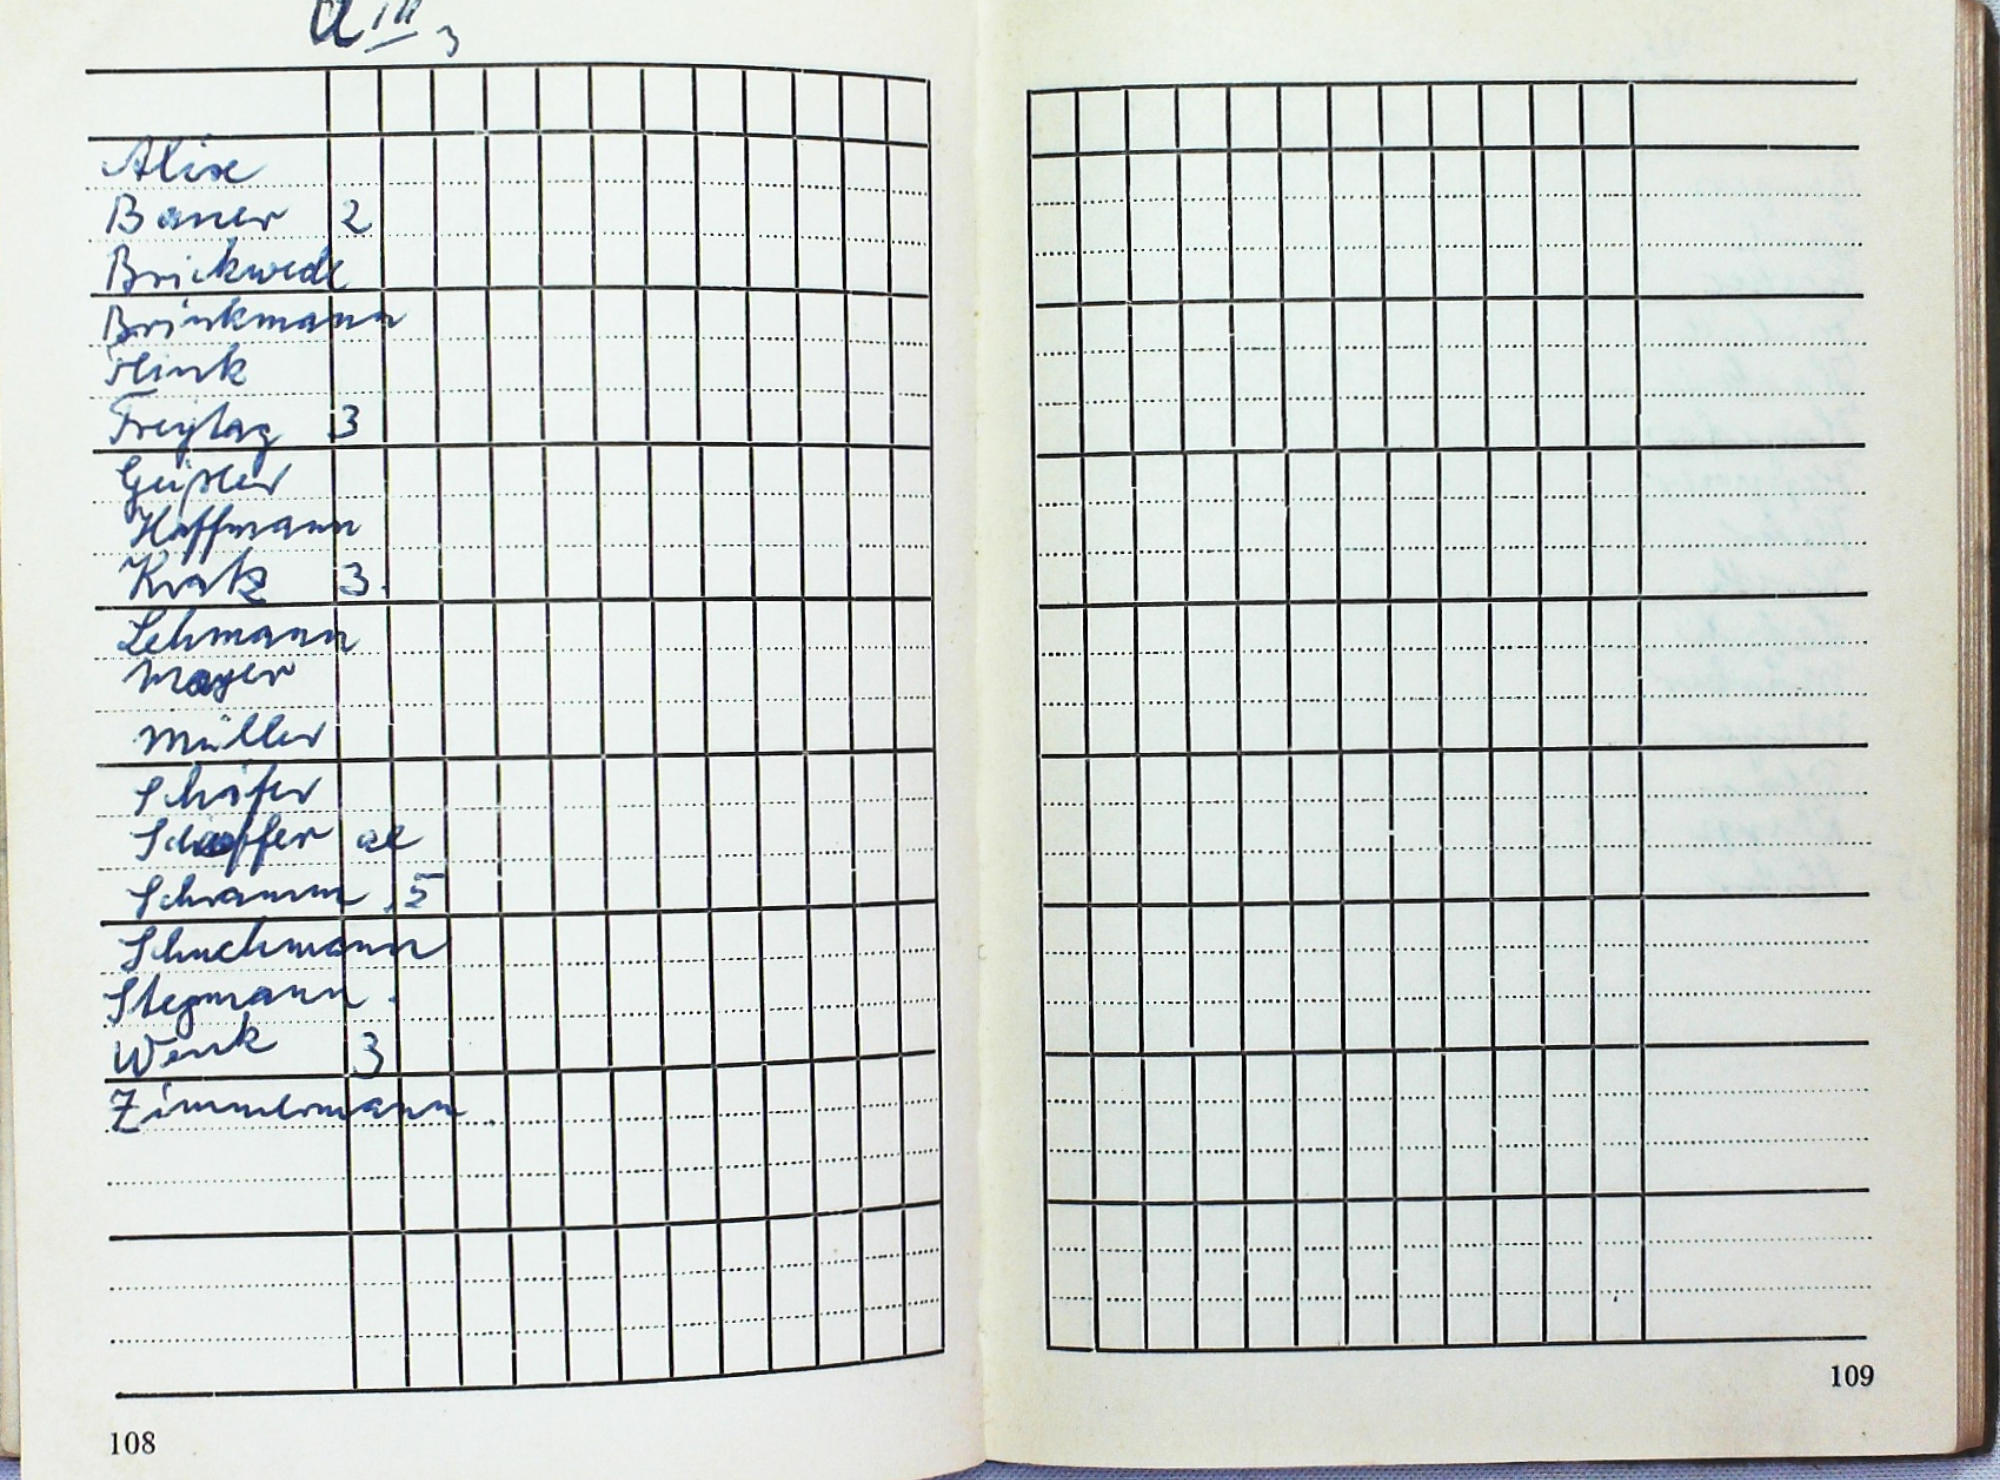 U III 3
Alixe
Bauer 2
Brickwede
Brinkmann
Flink
Freytag 3
Geißler
Hoffmann
Kratz 3.
Lehmann
Mayer
Müller
Schäfer
Schäffer al
Schramm 5
Schuchmann
Stegmann
Wenk 3
Zimmermann
108
109